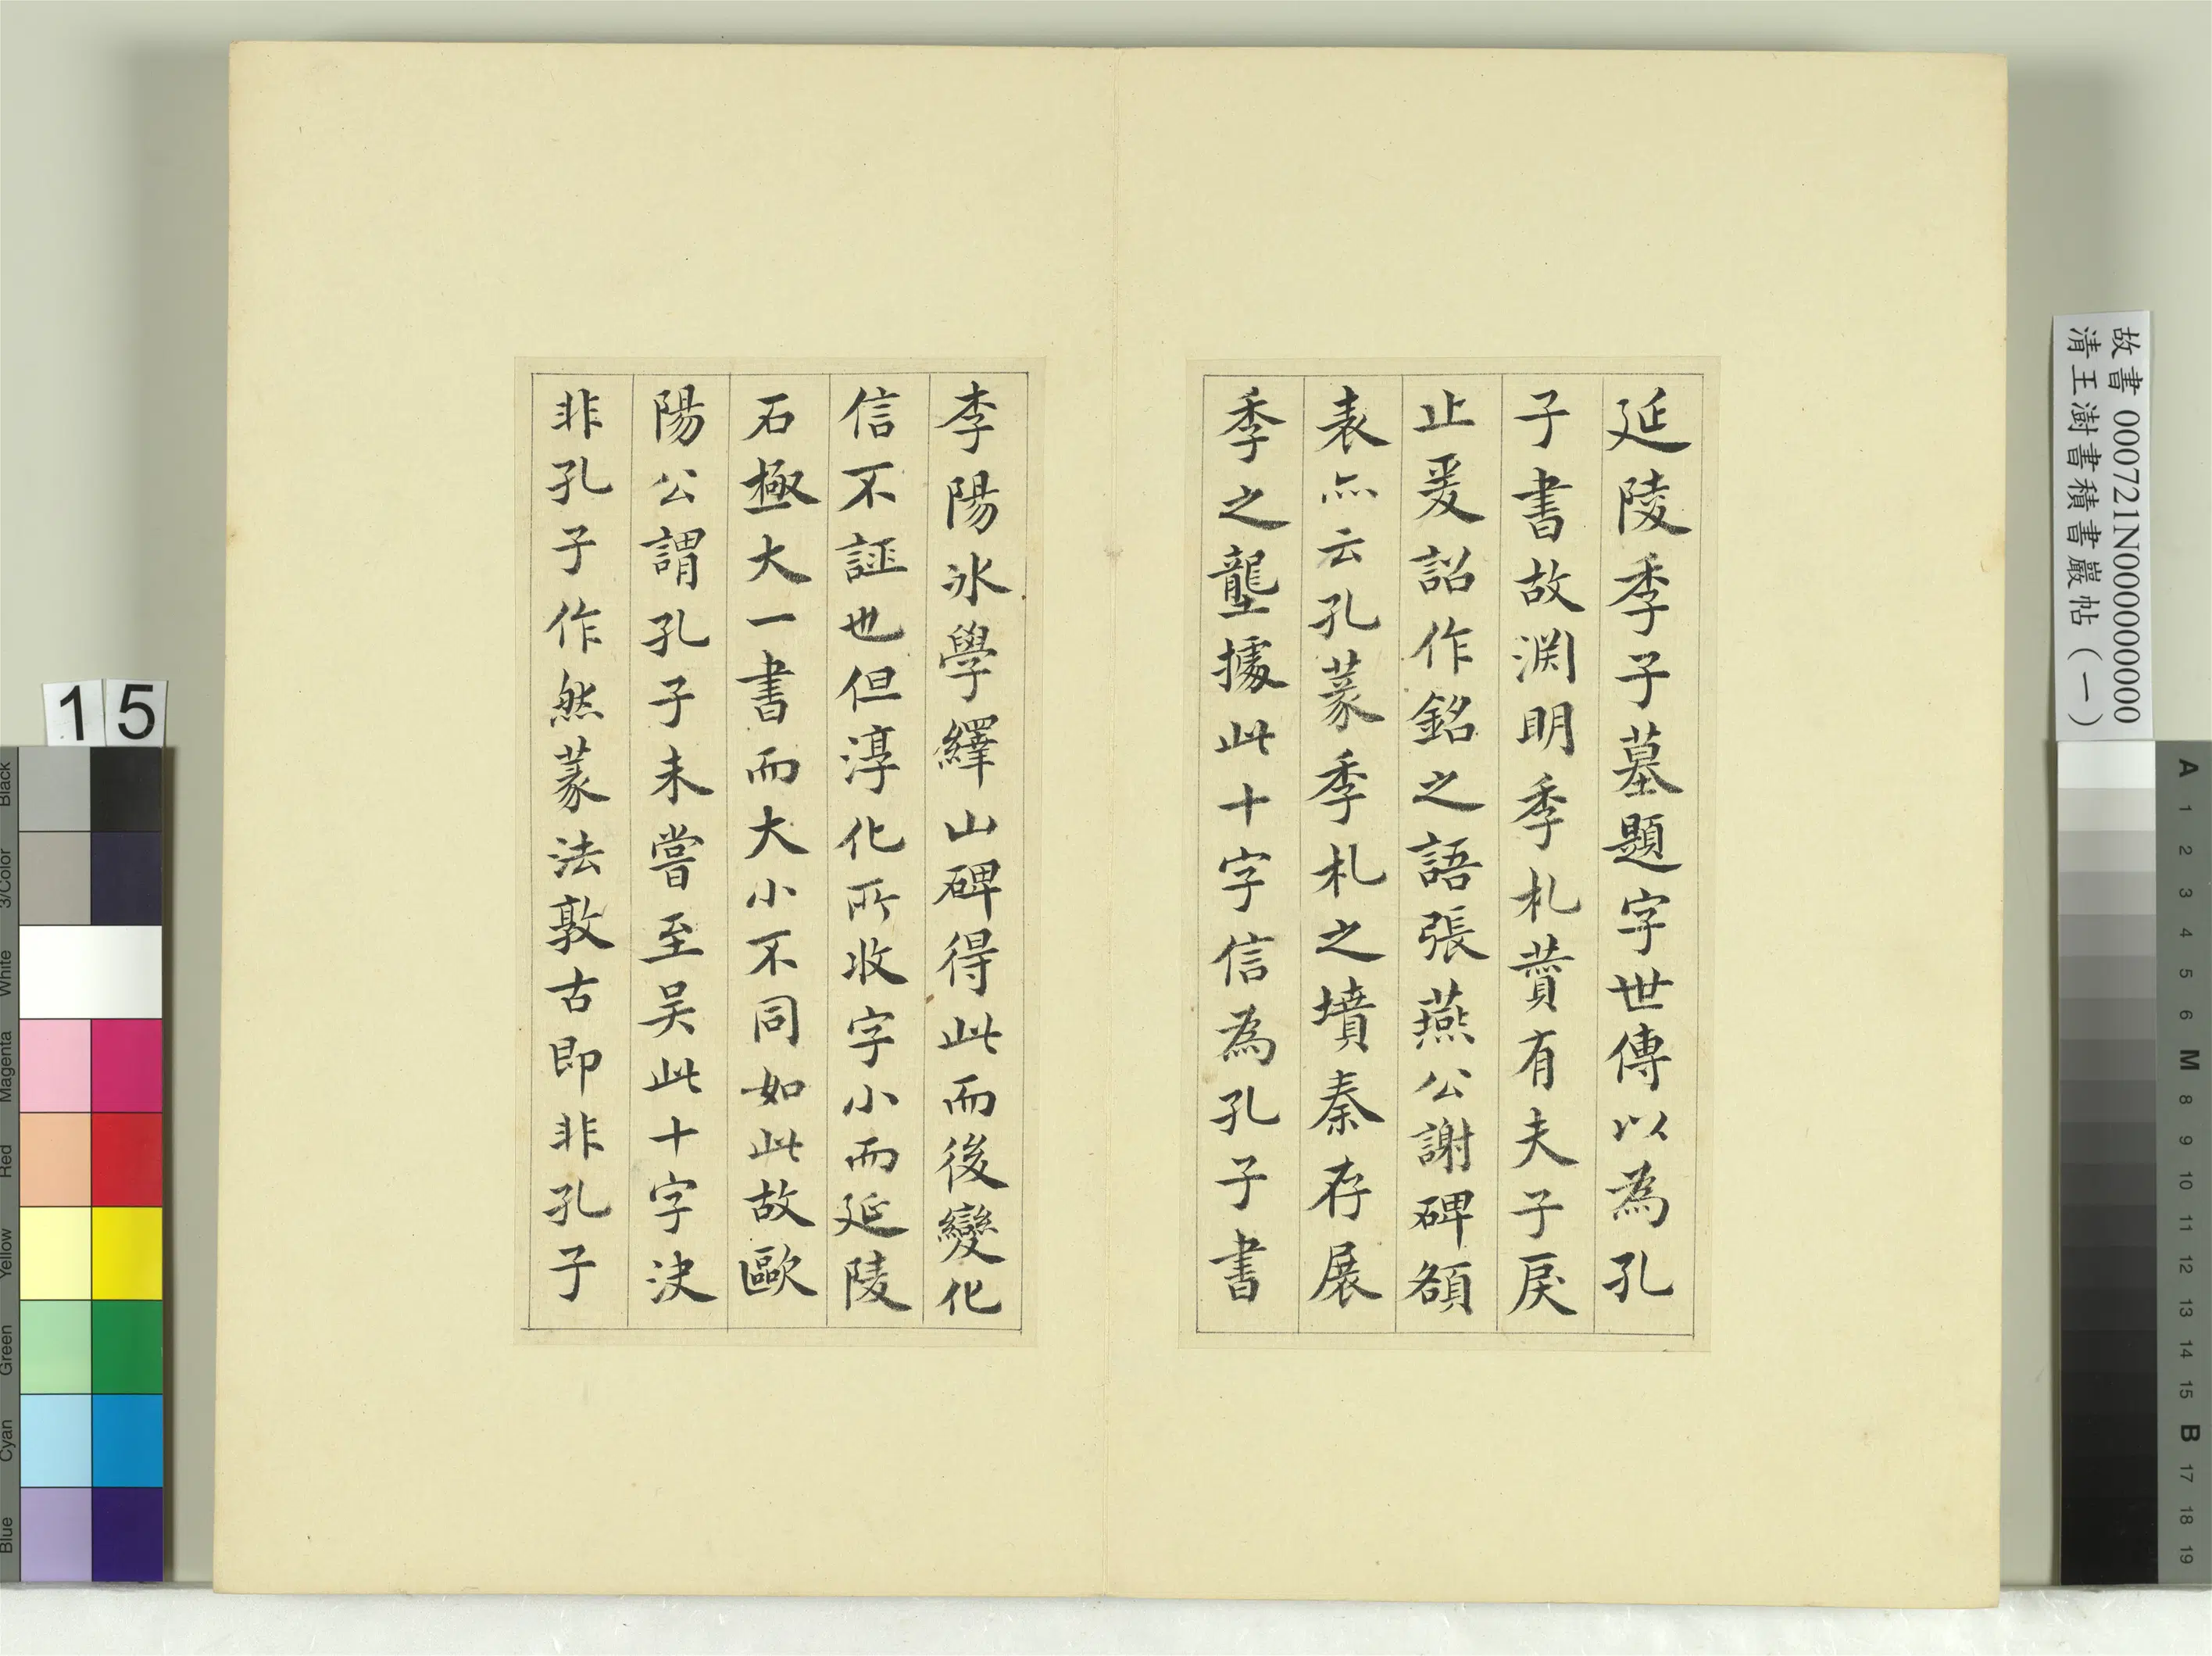 延陵季子墓題字世傳以為孔
子書故淵明季札贊有夫子戾
止爰詔作銘之語張燕公謝碑額
表亦云孔篆季札之墳秦存展
季之壟據此十字信為孔子書
李陽冰學繹山碑得此而後變化
信不誣也但淳化所收字小而延陵
石極大一書而大小不同如此故歐
陽公謂孔子未嘗至吴此十字决
非孔子作然篆法敦古即非孔子
故書 000721N000000000
清王澍書積書巖帖（一）
15
Black
3/Color
White
Magenta
Red
Yellow
Green
Cyan
Blue
A
1
2
3
4
5
6
M
8
9
10
11
12
13
14
15
B
17
18
19